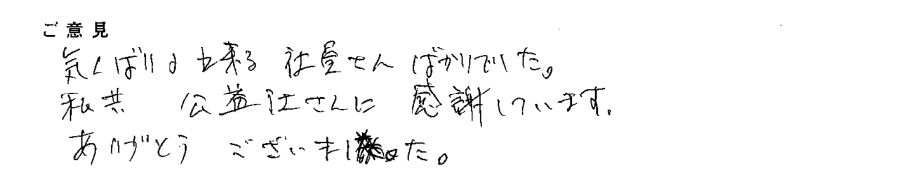 ご意見
気くばりの出来る 社員さん ばかりでした。
私共 公益社さんに 感謝しています。
ありがとう ございました。